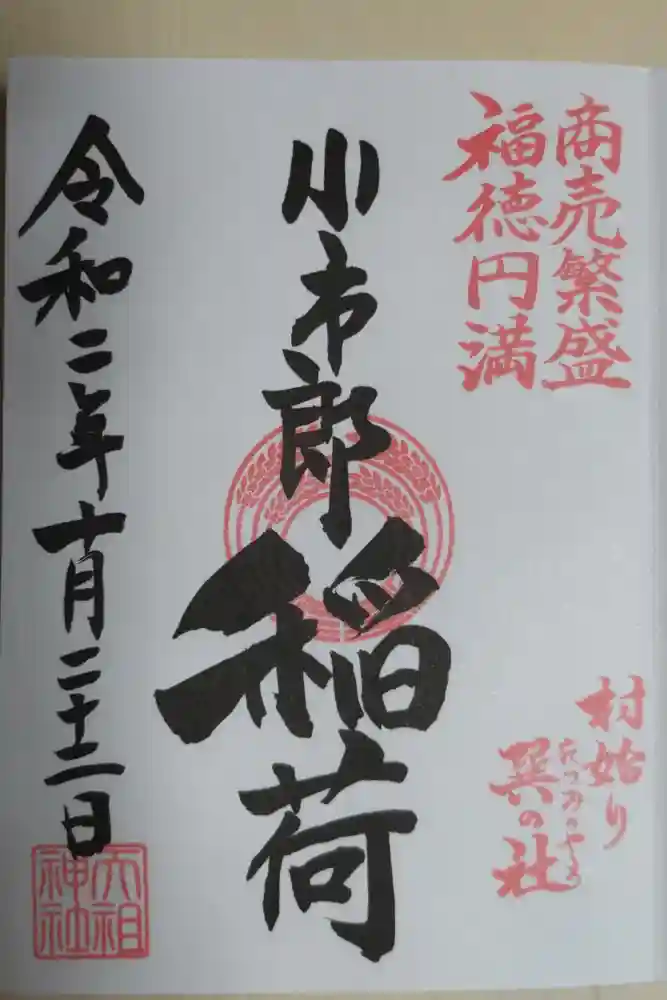 商売繁盛
福徳円満
村始り
たつみのやしろ
巽の社
小市郎稲荷
令和二年十月二十二日
大祖
神社